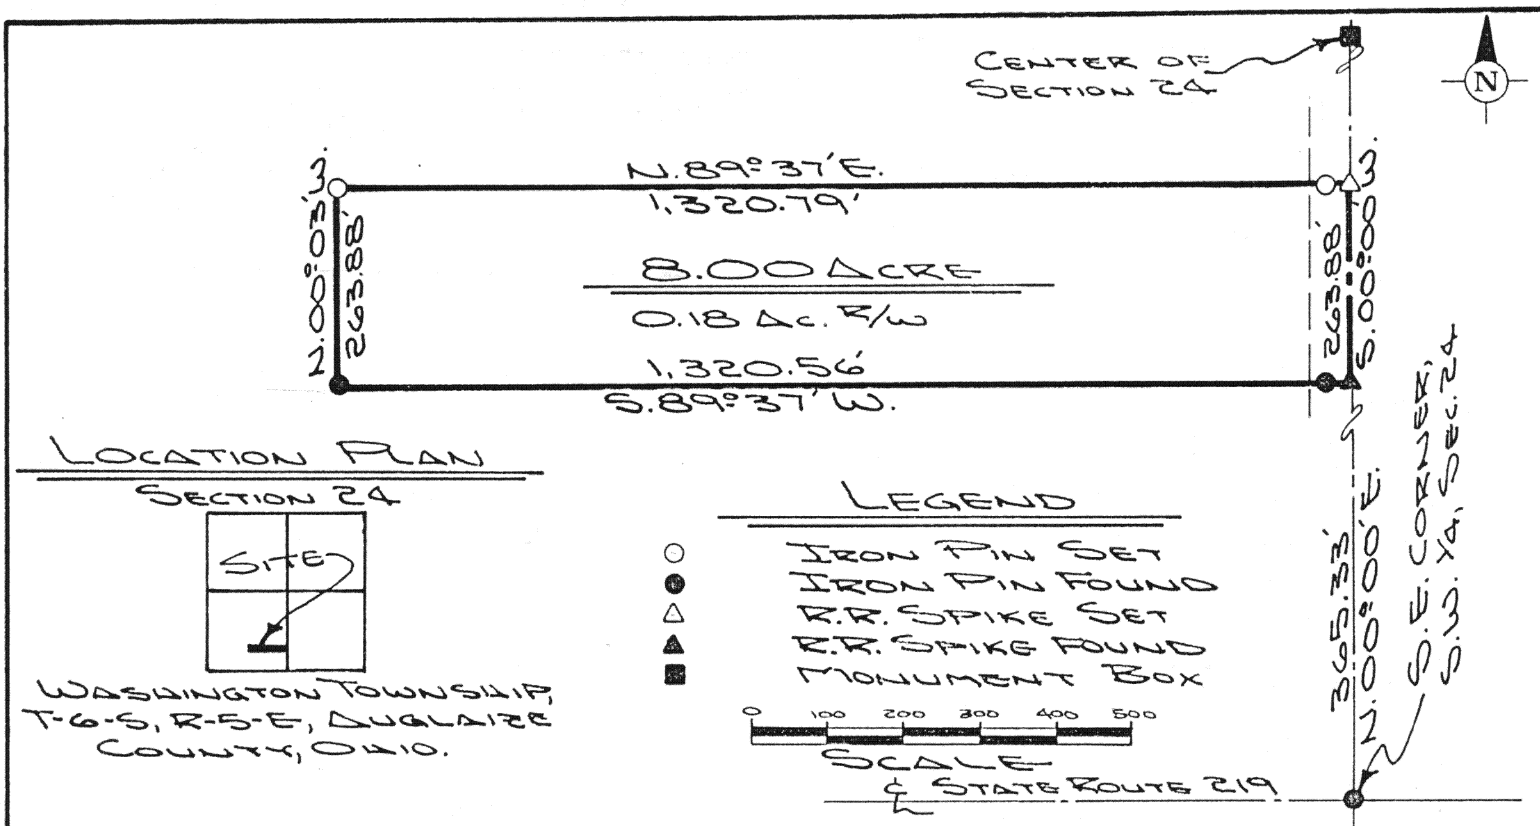 CENTER OF
SECTION 24
N
N.89°37'E.
1,320.79'
N.00°03'E.
263.88'
263.88'
S.00°00'E.
8.00 ACRE
0.18 AC. R/W
1,320.56'
S.89°37'W.
LOCATION PLAN
SECTION 24
SITE
WASHINGTON TOWNSHIP,
T-6-S, R-5-E, AUGLAIZE
COUNTY, OHIO.
LEGEND
IRON PIN SET
IRON PIN FOUND
R.R. SPIKE SET
R.R. SPIKE FOUND
MONUMENT BOX
0 100 200 300 400 500
SCALE
℄ STATE ROUTE 219
365.33'
N.00°00'E.
S.E. CORNER,
S.W. 1/4, SEC. 24